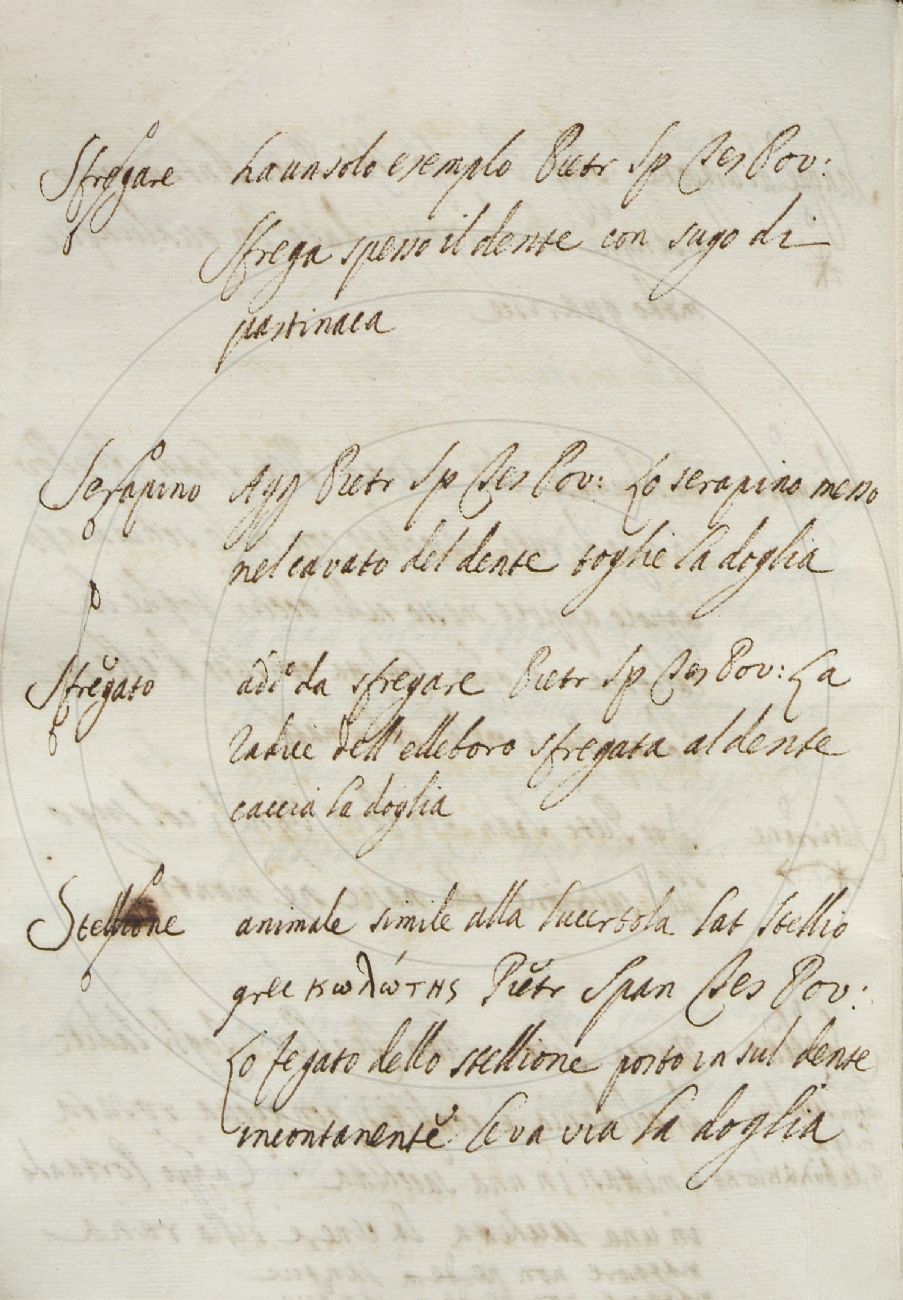 Sfregare ha un solo esempio Pietr Sp Tes Pov:
Sfrega spesso il dente con sugo di
pastinaca
Serapino Agg Pietr Sp Tes Pov: Lo serapino messo
nel cavato del dente toglie la doglia
Sfregato add.º da sfregare Pietr Sp Tes Pov: La
radice dell'elleboro sfregata al dente
caccia la doglia
Stellione animale simile alla lucertola lat stellio
grec κωλώτης Pietr Span Tes Pov:
Lo fegato dello stellione posto in sul dente
incontanente leva via la doglia